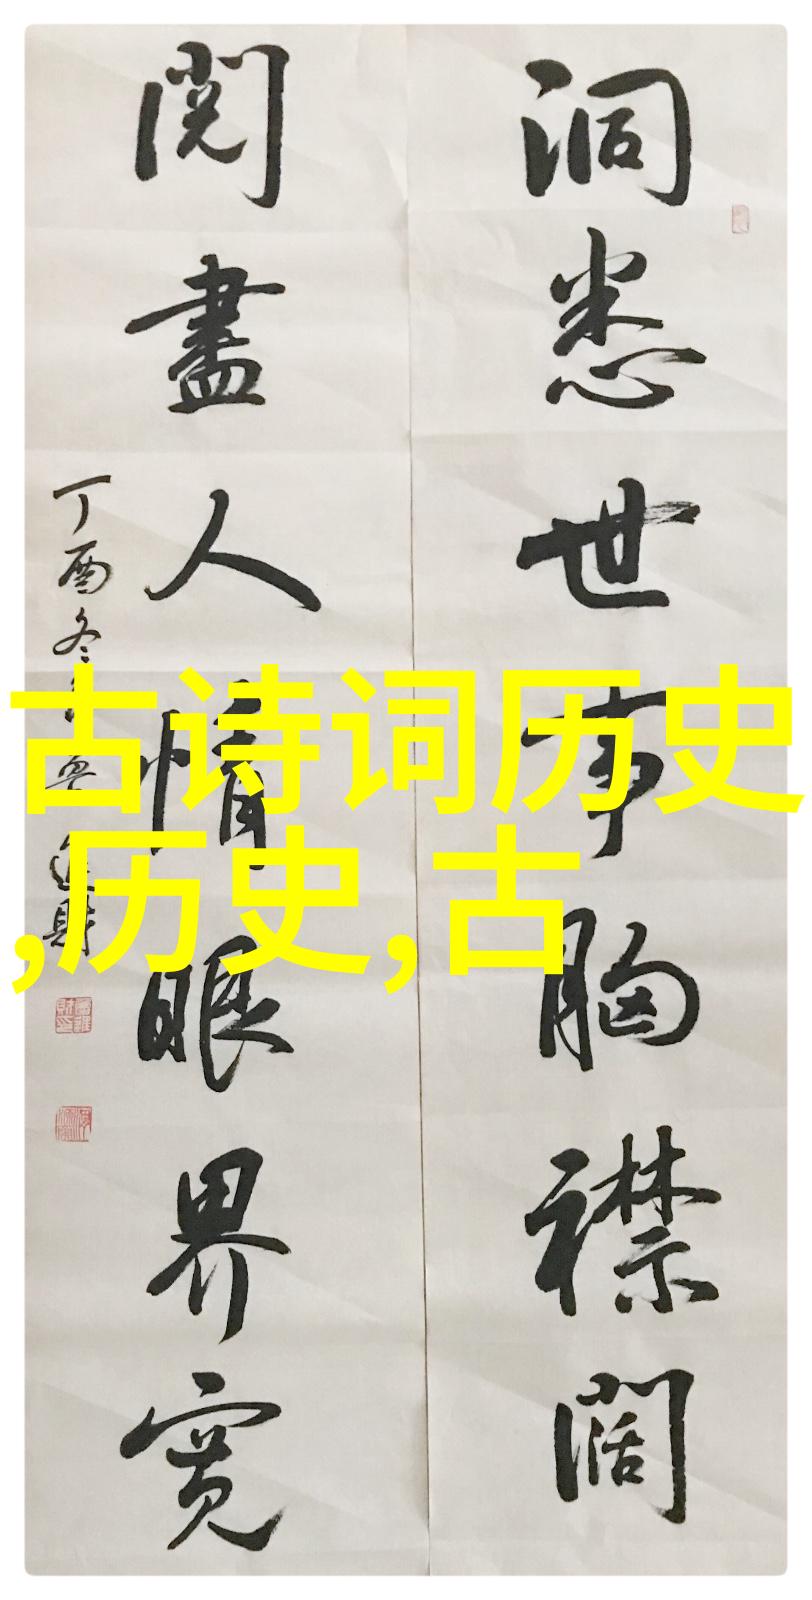 洞悉世事胸襟阔
阅盡人情眼界宽
丁酉冬
進財
古诗词历史
,历史,古